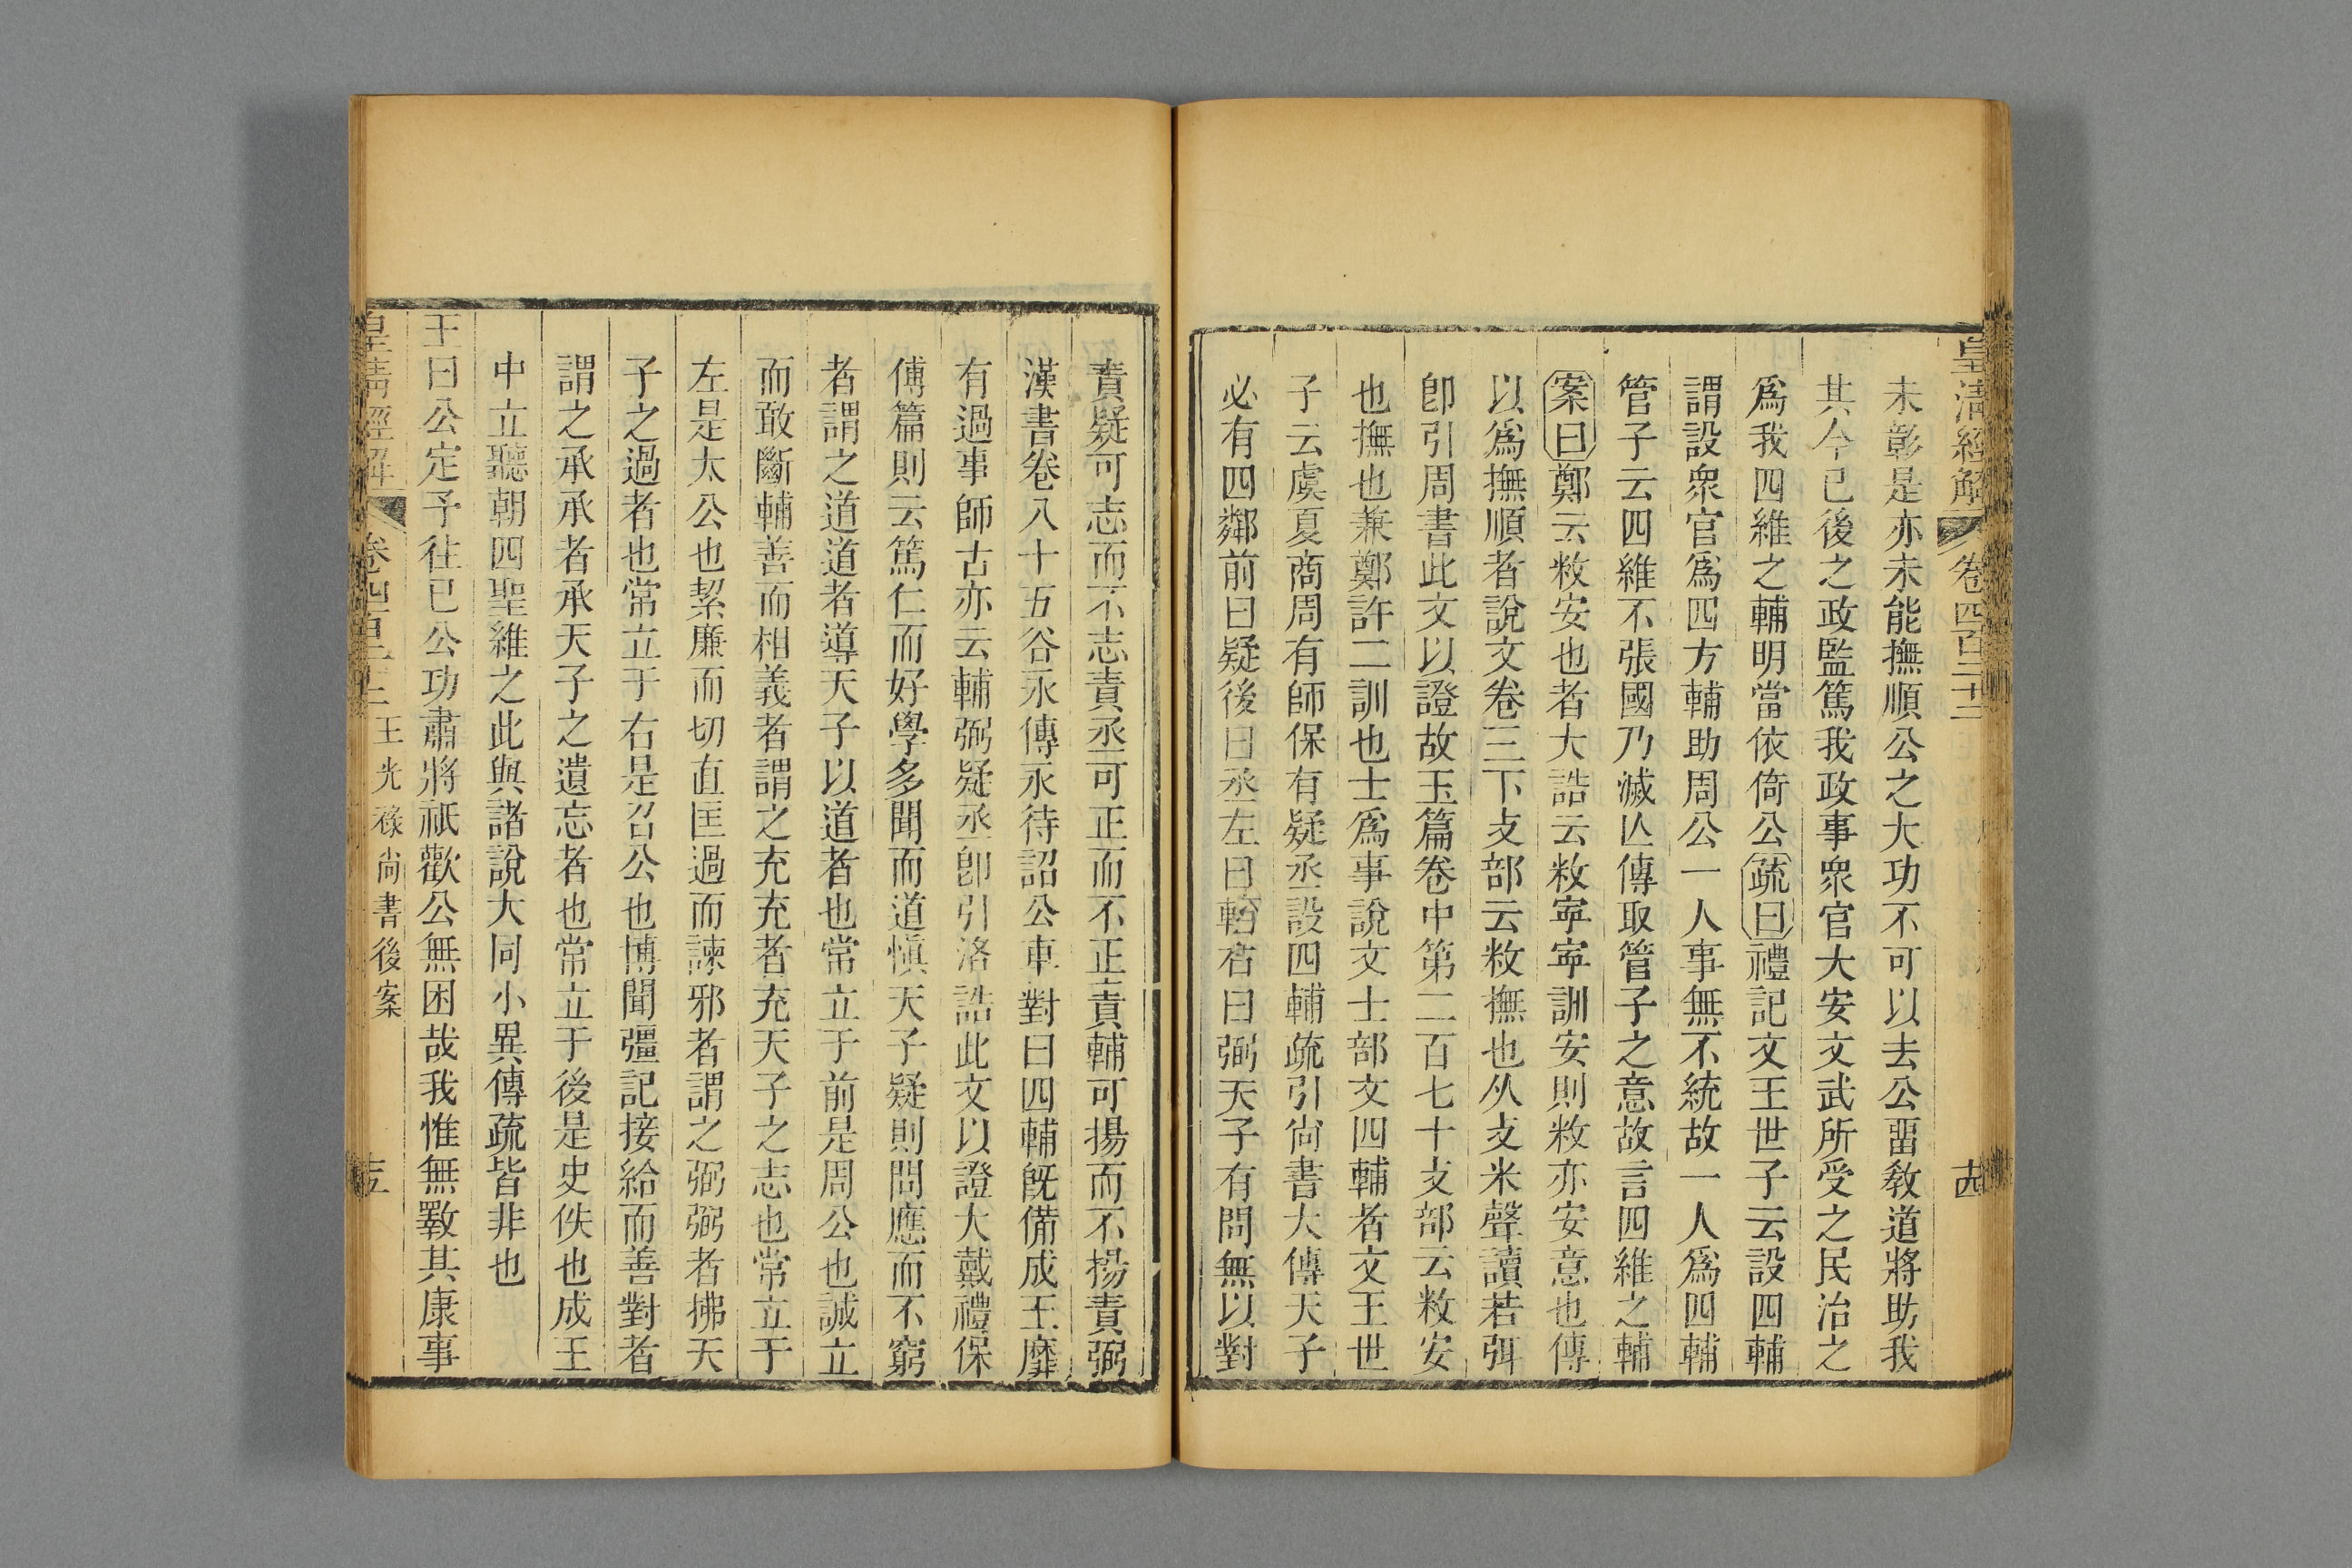 皇清經解 卷四百二十二 十四
未彰是亦未能撫順公之大功不可以去公畱教道將助我
其今已後之政監篤我政事衆官大安文武所受之民治之
爲我四維之輔明當依倚公疏曰禮記文王世子云設四輔
謂設衆官爲四方輔助周公一人事無不統故一人爲四輔
管子云四維不張國乃滅亾傳取管子之意故言四維之輔
案曰鄭云敉安也者大誥云敉寜寜訓安則敉亦安意也傳
以爲撫順者說文卷三下攴部云敉撫也从攴米聲讀若弭
卽引周書此文以證故玉篇卷中第二百七十攴部云敉安
也撫也兼鄭許二訓也士爲事說文士部文四輔者文王世
子云虞夏商周有師保有疑丞設四輔疏引尙書大傳天子
必有四鄰前曰疑後曰丞左曰輔右曰弼天子有問無以對
責疑可志而不志責丞可正而不正責輔可揚而不揚責弼
漢書卷八十五谷永傳永待詔公車對曰四輔旣備成王靡
有過事師古亦云輔弼疑丞卽引洛誥此文以證大戴禮保
傅篇則云篤仁而好學多聞而道愼天子疑則問應而不窮
者謂之道道者導天子以道者也常立于前是周公也誠立
而敢斷輔善而相義者謂之充充者充天子之志也常立于
左是太公也絜廉而切直匡過而諫邪者謂之弼弼者拂天
子之過者也常立于右是召公也博聞彊記接給而善對者
謂之承承者承天子之遺忘者也常立于後是史佚也成王
中立聽朝四聖維之此與諸說大同小異傳疏皆非也
王曰公定予往已公功肅將祇歡公無困哉我惟無斁其康事
皇清經解 卷四百二十二 王光祿尙書後案 十五